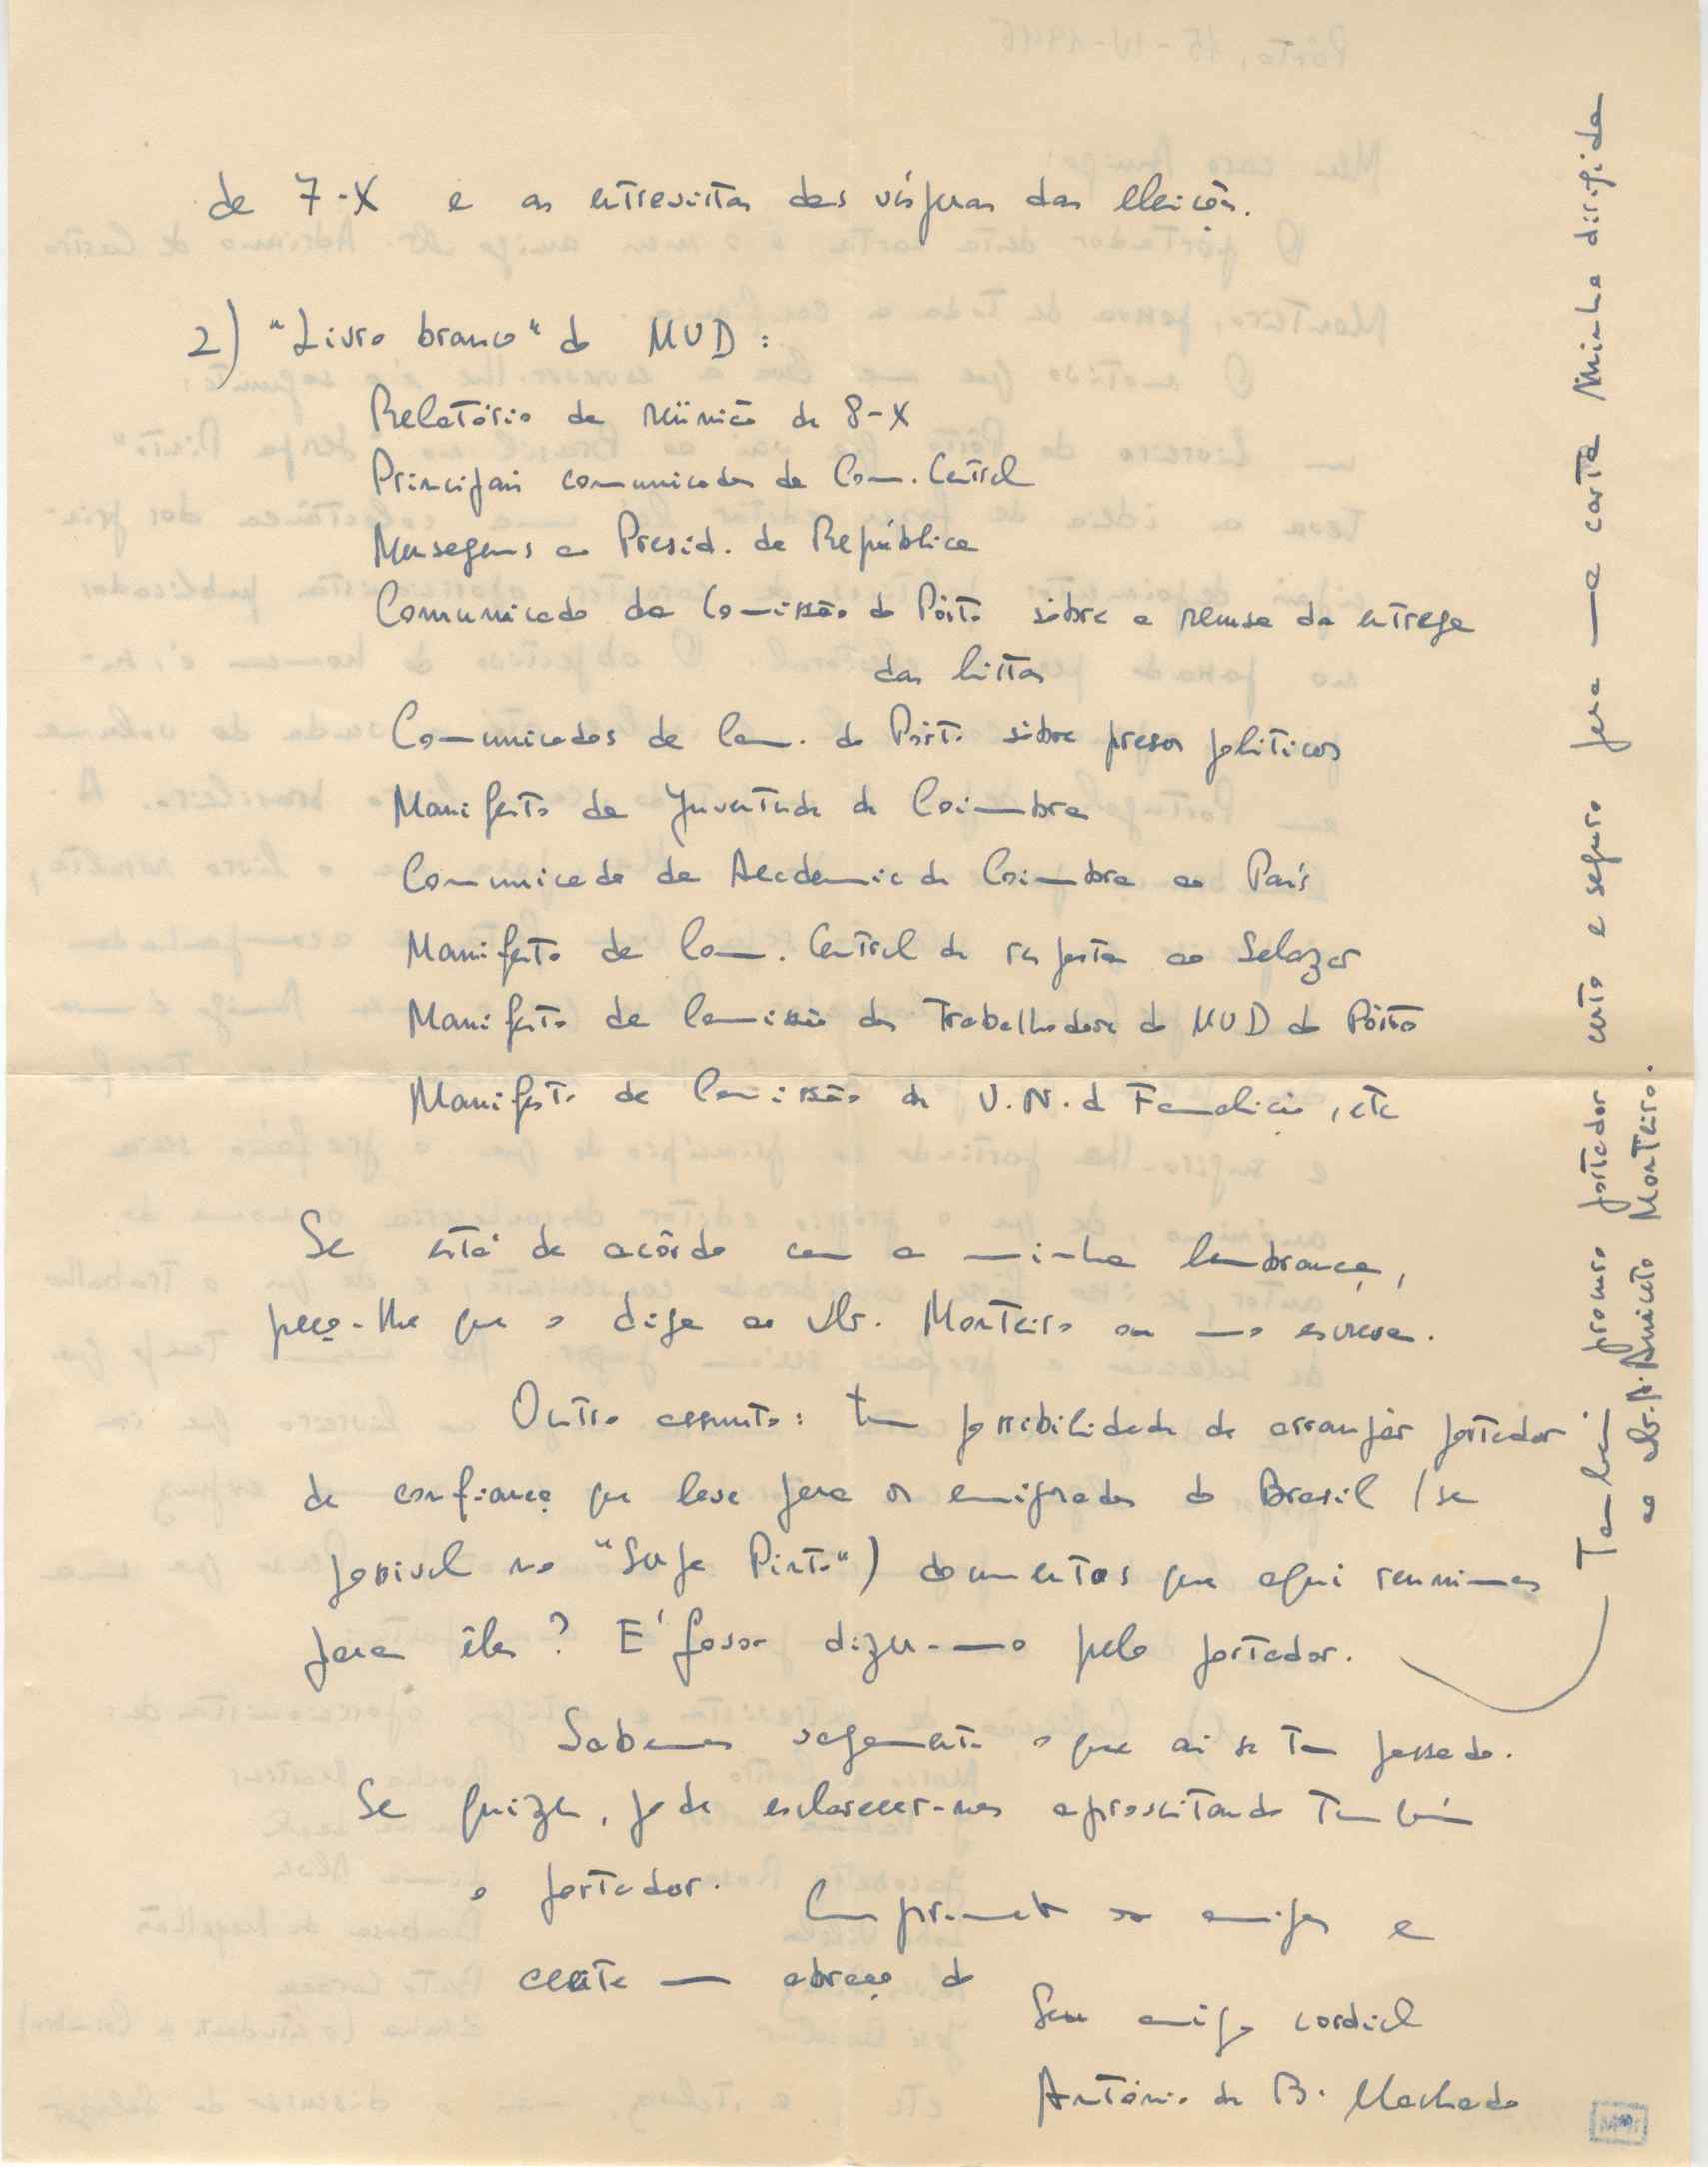 de 7-X e as entrevistas das vésperas das eleições.
2) "Livro branco" do MUD:
Relatório da reünião de 8-X
Principais comunicados da Com. Central
Mensagens ao Presid. da República
Comunicado da Comissão do Pôrto sôbre a recusa da entrega
das listas
Comunicados da Com. do Pôrto sôbre presos políticos
Manifesto da Juventude de Coimbra
Comunicado da Academia de Coimbra ao País
Manifesto da Com. Central de resposta ao Salazar
Manifesto da Comissão dos Trabalhadores do MUD do Pôrto
Manifesto da Comissão de V. N. de Famalicão, etc
Se está de acôrdo com a minha lembrança,
peço-lhe que o diga ao Dr. Monteiro ou mo escreva.
Outro assunto: tem possibilidade de arranjar portador
de confiança que leve para os emigrados do Brasil (se
possível no "Serpa Pinto") documentos que aqui reunimos
para êles? É favor dizer-mo pelo portador.
Também procuro portador certo e seguro para uma carta minha dirigida
ao Dr. A. Aniceto Monteiro.
Sabemos vagamente o que aí se tem passado.
Se quizer, pode esclarecer-nos aproveitando também
o portador. Cumprimente os amigos e
aceite um abraço do
Seu amigo cordial
António de B. Machado